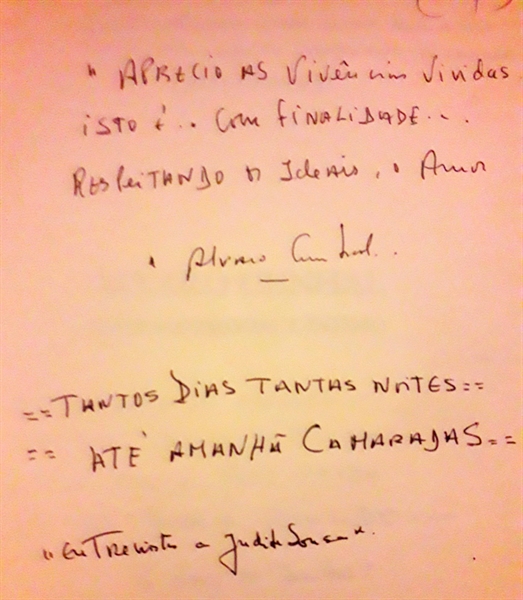 " APRECIO AS Vivências Vividas
iSTO É.. Com FINALIDADE...
RESPEITANDO os Ideais, o Amor
" Alvaro Cunhal..
==TANTOS DIAS TANTAS NOITES==
== ATÉ AMANHÃ CAMARADAS==
"ENTREvista a Judite Sousa".